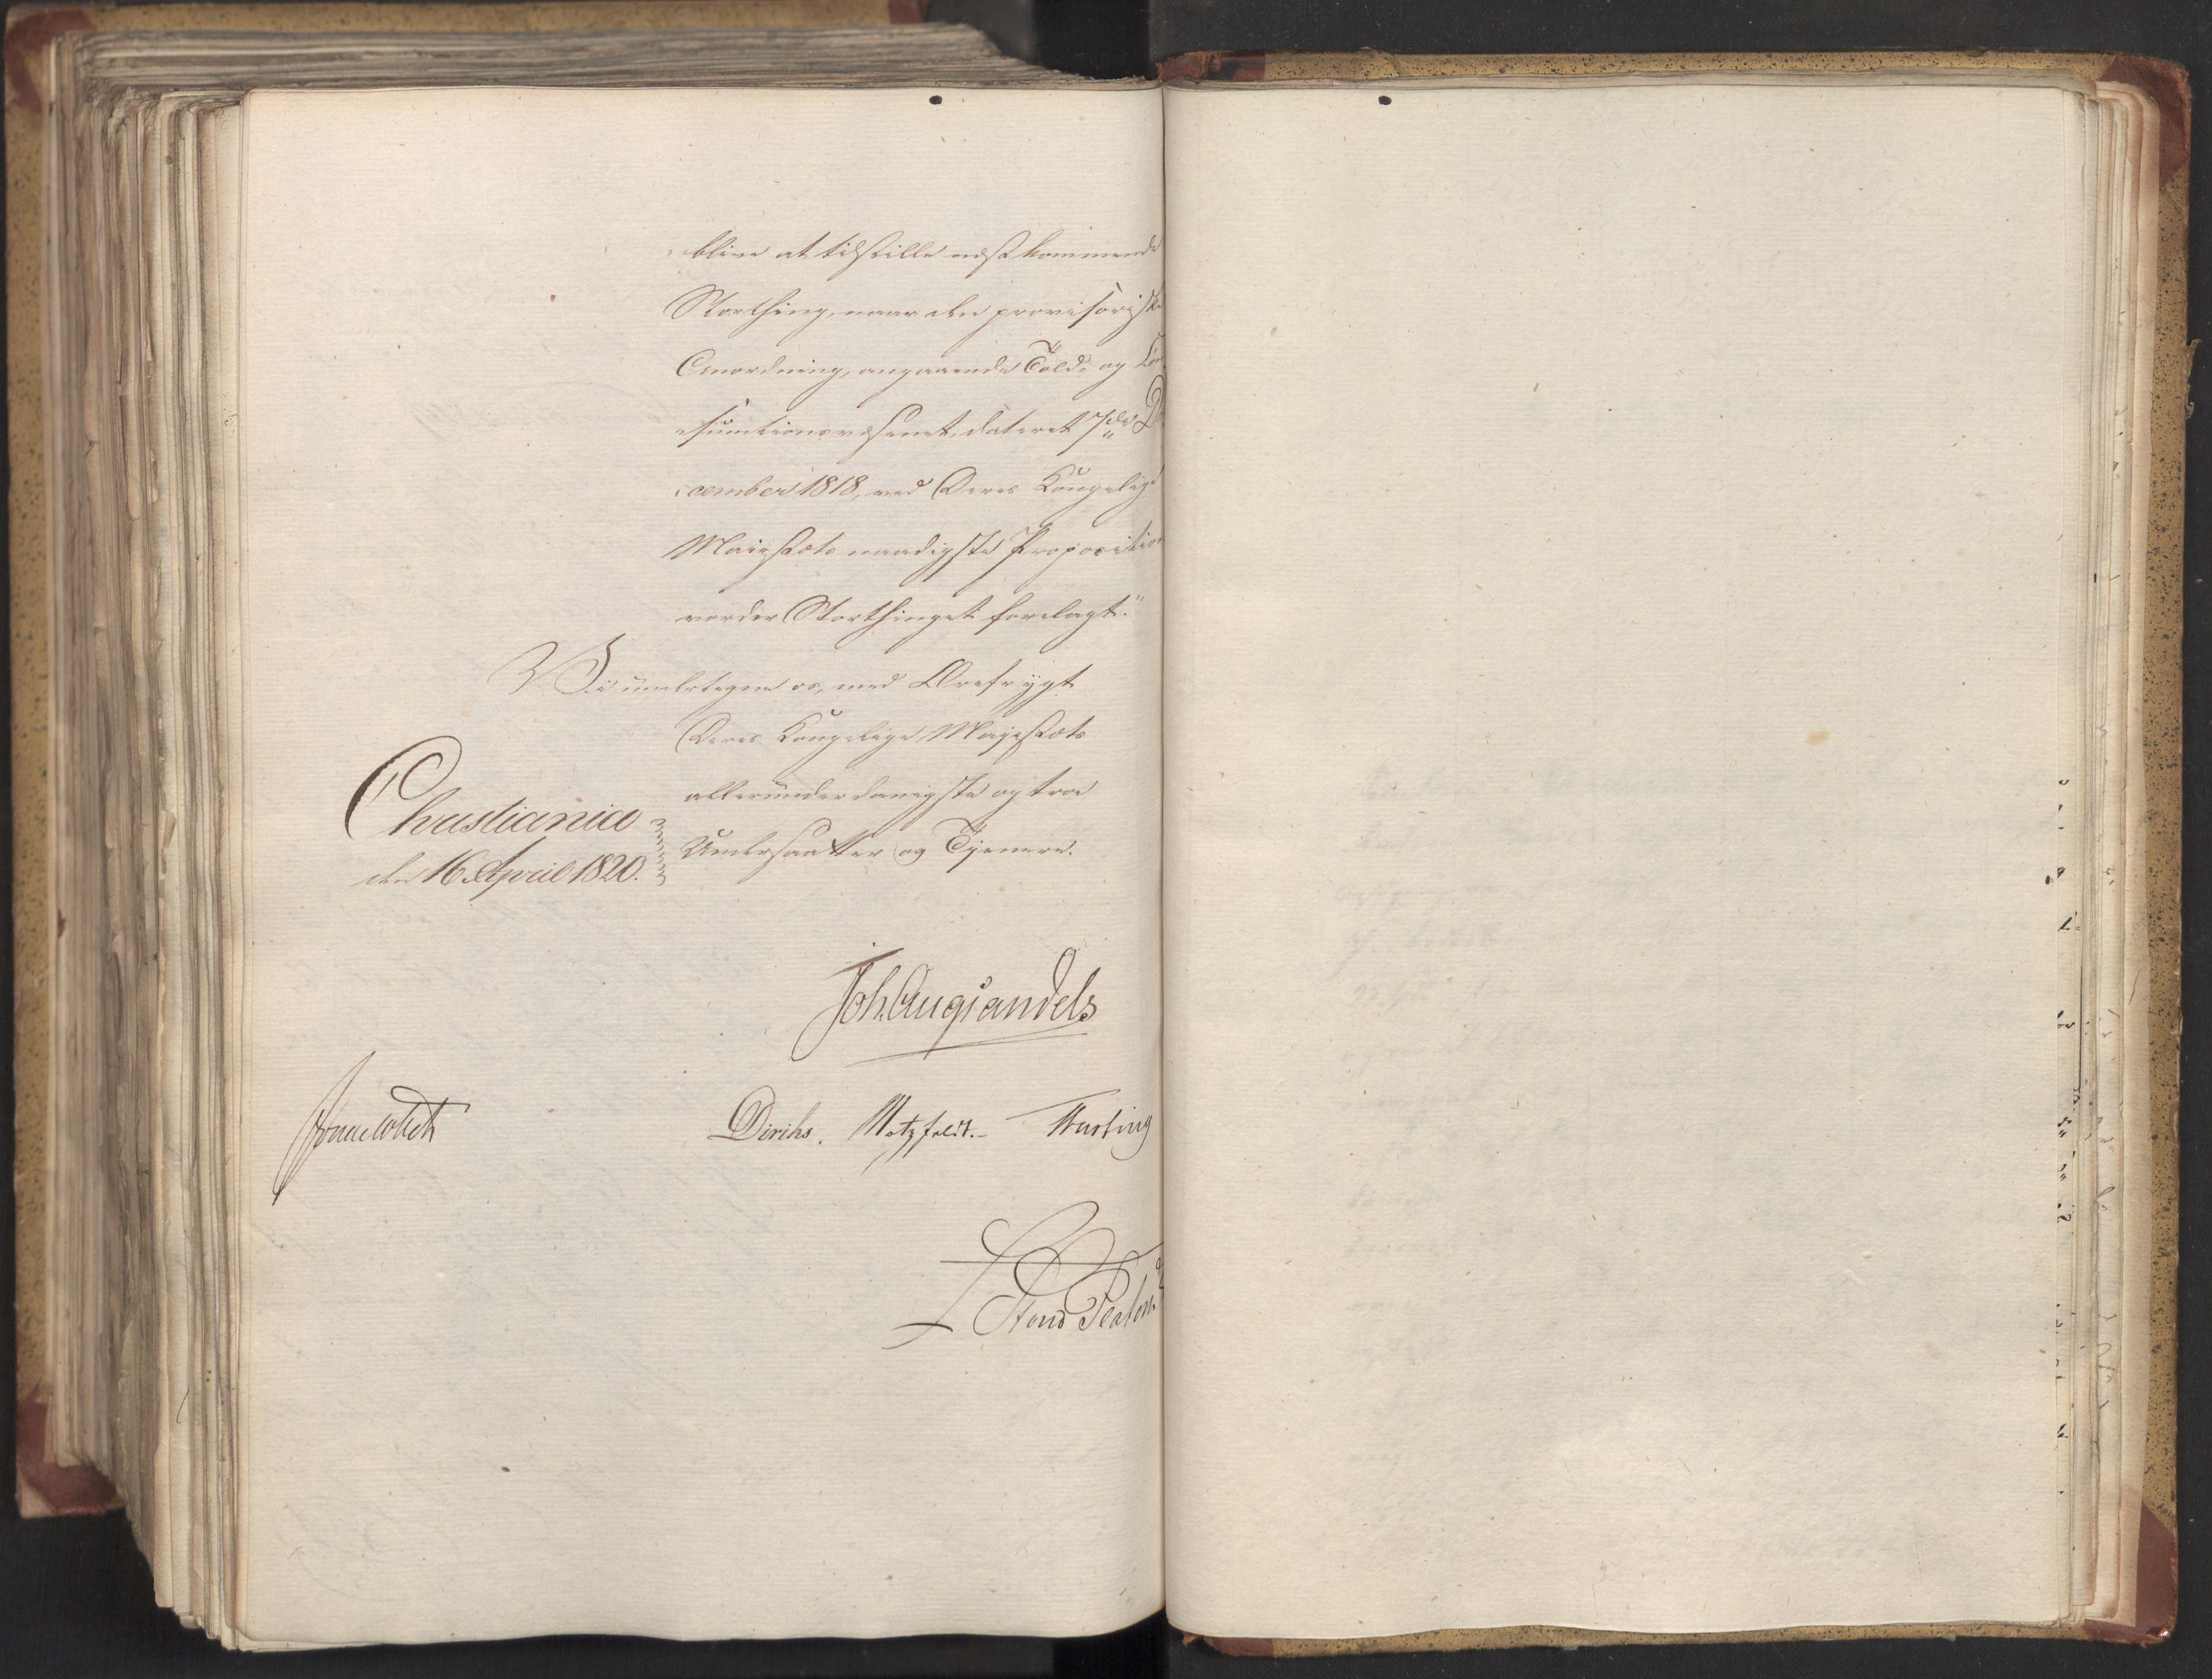 blive at tilstille næstkommende
Storthing, naar den provisoriske
Anordning, angaaende Told- og Con-
sumtionsvæsenet, dateret 7de De-
cember 1818, ved Deres Kongelige
Maiestæts naadigste Proposition
vorder Storthinget forelagt."
Vi undertegne os, med Ærefrygt
Deres Kongelige Majestæts
allerunderdanigste og troe
Undersaatter og Tjenere.
Christiania
den 16 April 1820.
Joh. Aug. Sandels
Sommerhielm
Diriks. Motzfeldt.- Krefting